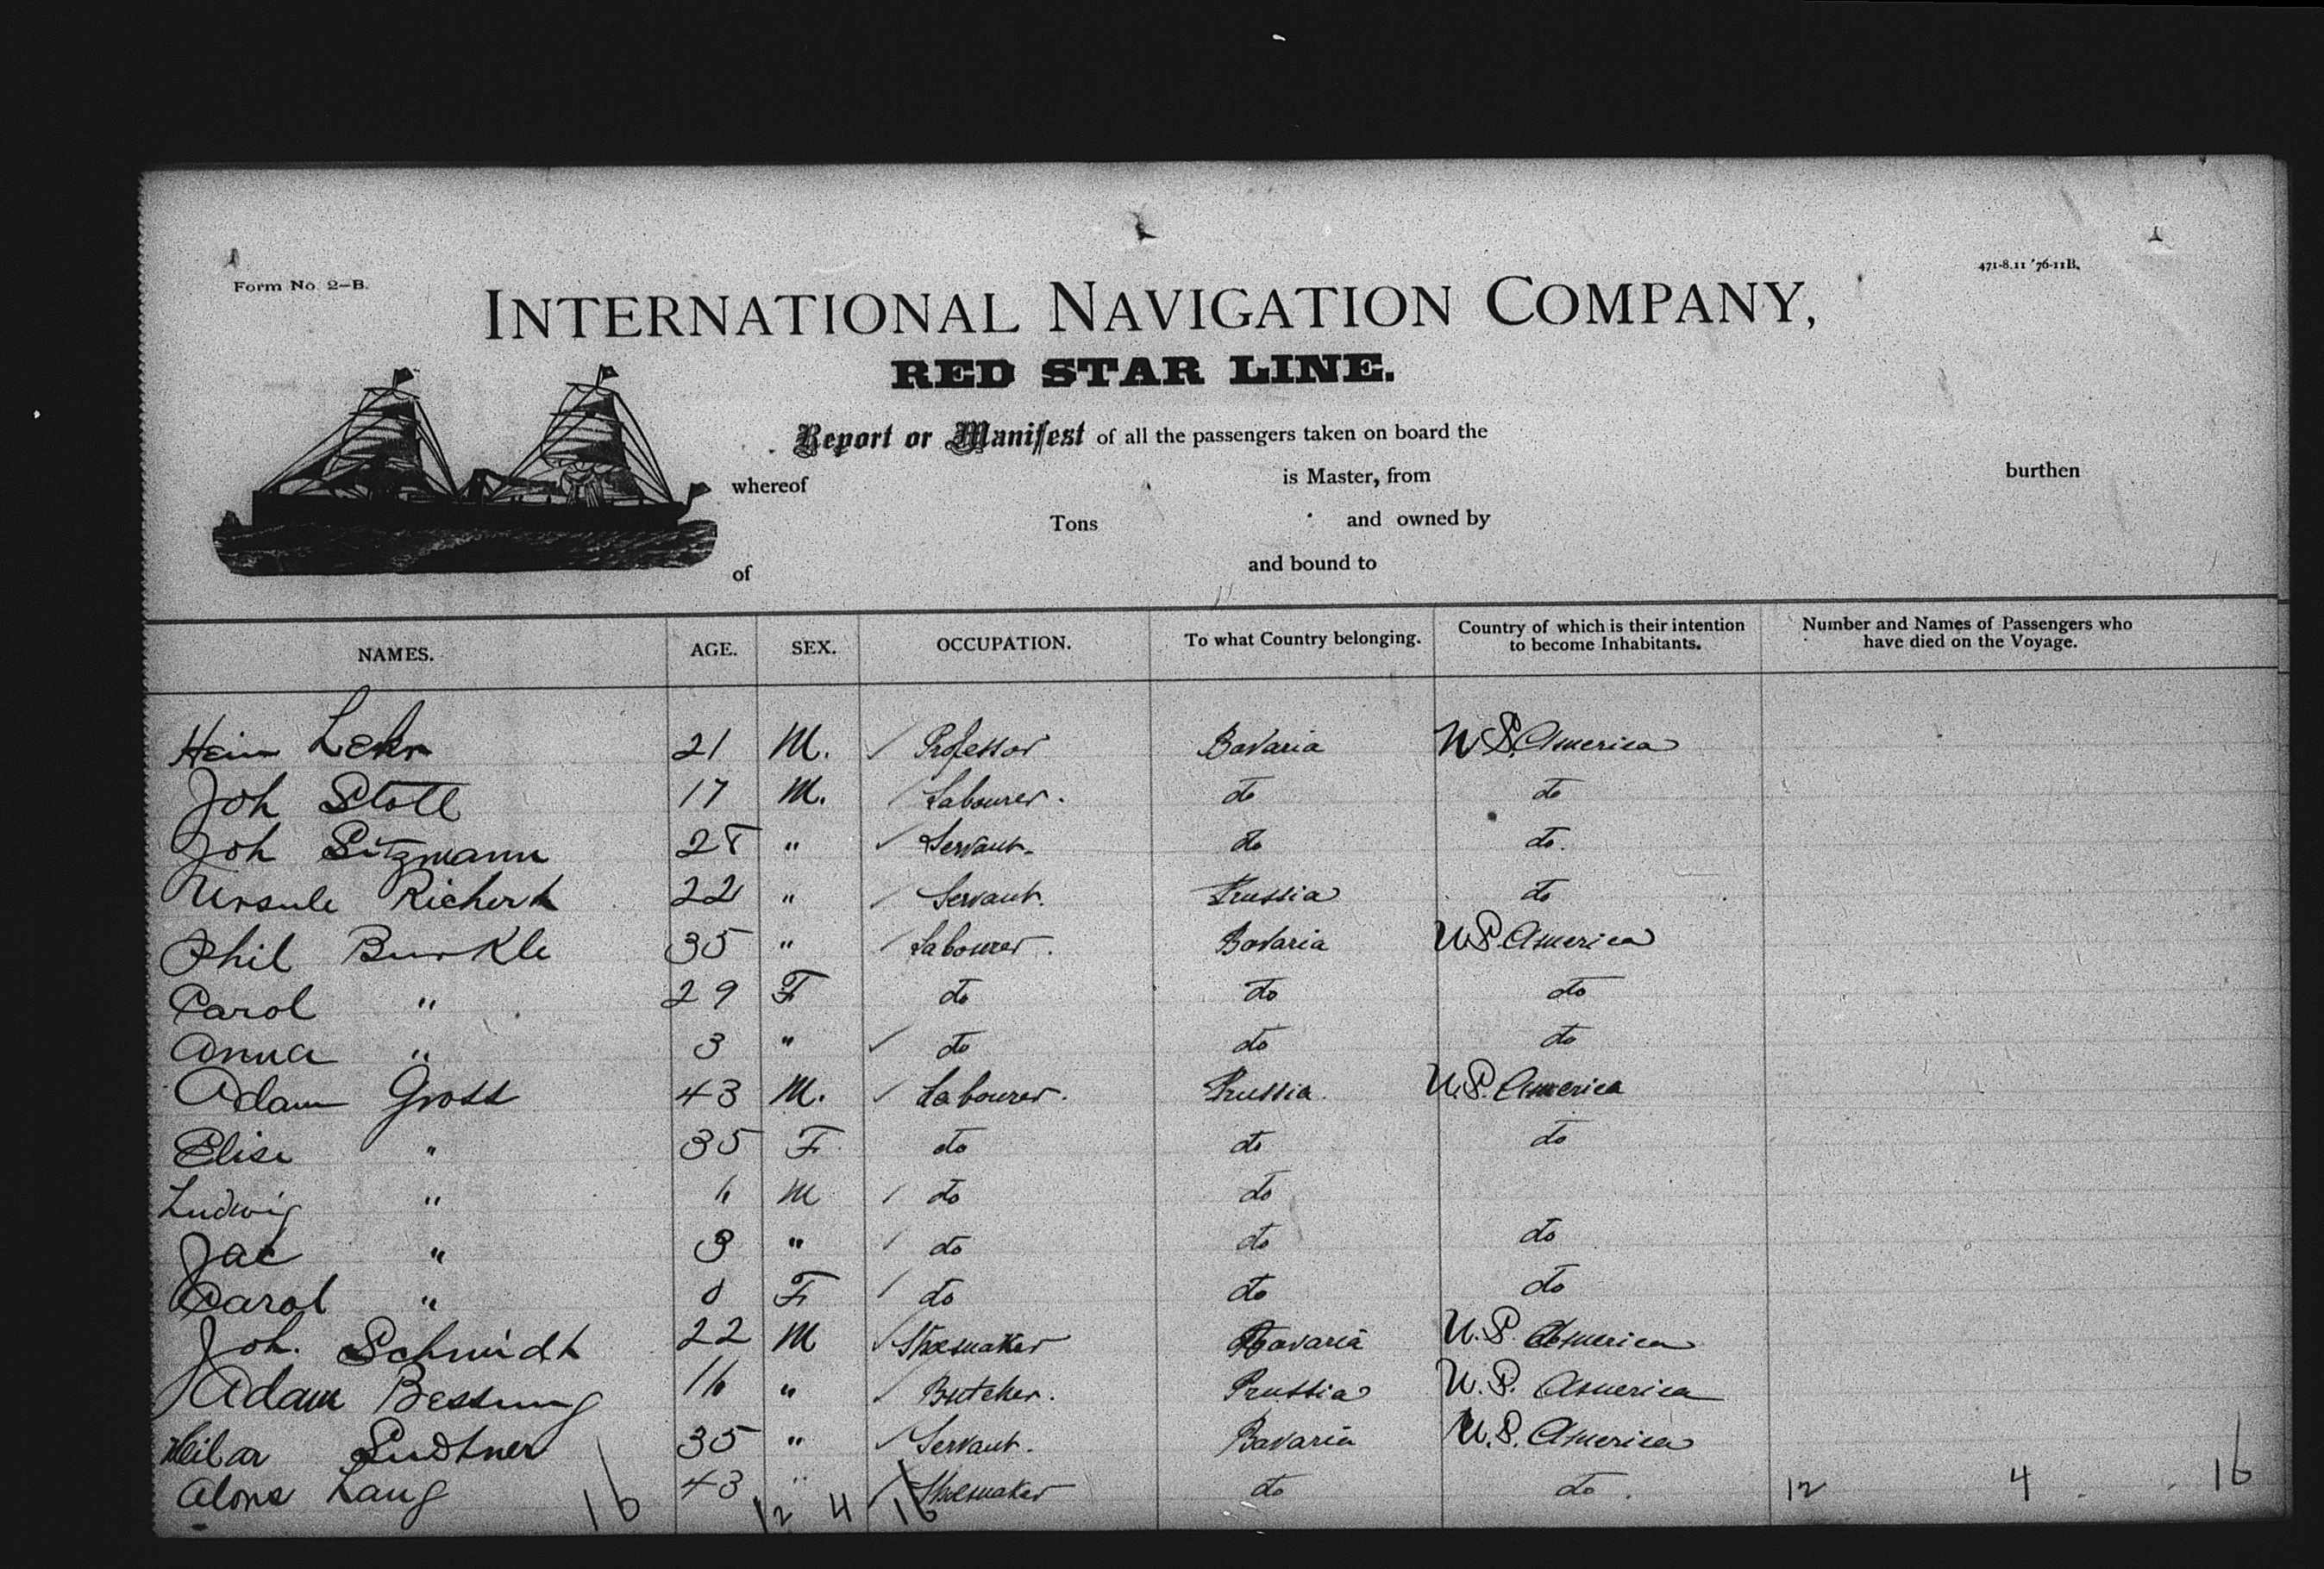 Form No. 2-B.
471-8.11 '76-11B.
INTERNATIONAL NAVIGATION COMPANY,
RED STAR LINE.
Report or Manifest of all the passengers taken on board the
whereof is Master, from burthen
Tons and owned by
of and bound to
NAMES. AGE. SEX. OCCUPATION. To what Country belonging. Country of which is their intention to become Inhabitants. Number and Names of Passengers who have died on the Voyage.
Hein Lehr 21 M. Professor Bavaria U S. America
Joh Stoll 17 M. Labourer. do do
Joh Sitzmann 28 " Servant. do do.
Ursule Richert 22 " Servant. Prussia do
Phil Burkle 35 " Labourer. Bavaria U S. America
Carol " 29 F do do do
Anna " 3 " do do do
Adam Gross 43 M. Labourer. Prussia U.S. America
Elise " 35 F. do do do
Ludwig " M do do
Jac " 3 " do do do
Carol " 0 F. do do do
Joh. Schmidt 22 M Shoemaker Bavaria U.S. America
Adam Bessung 16 " Butcher. Prussia U.S. America
35 " Servant. Bavaria U.S. America
Lang 43 " Shoemaker do do.
16 12 4 16 12 4 16